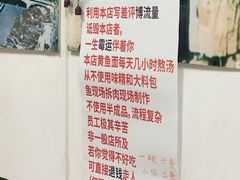 利用本店写差评博流量
诋毁本店者，
一生霉运伴着你
本店黄鱼面每天几小时熬汤
从不使用味精和大料包
鱼现场拆肉现场制作
不使用半成品，流程复杂
员工极其辛苦
非一般店所及
若你觉得不好吃
可直接退钱走人